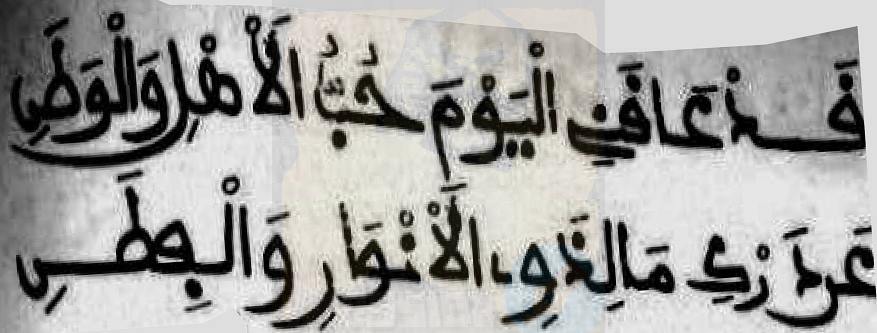 قَدْ عَاقَنِي الْيَوْمَ حُبُّ الْأَهْلِ وَالْوَطَنِ
عَن دَرْكِ مَا لِذَوِي الْأَنْوَارِ وَالْفِطَنِ